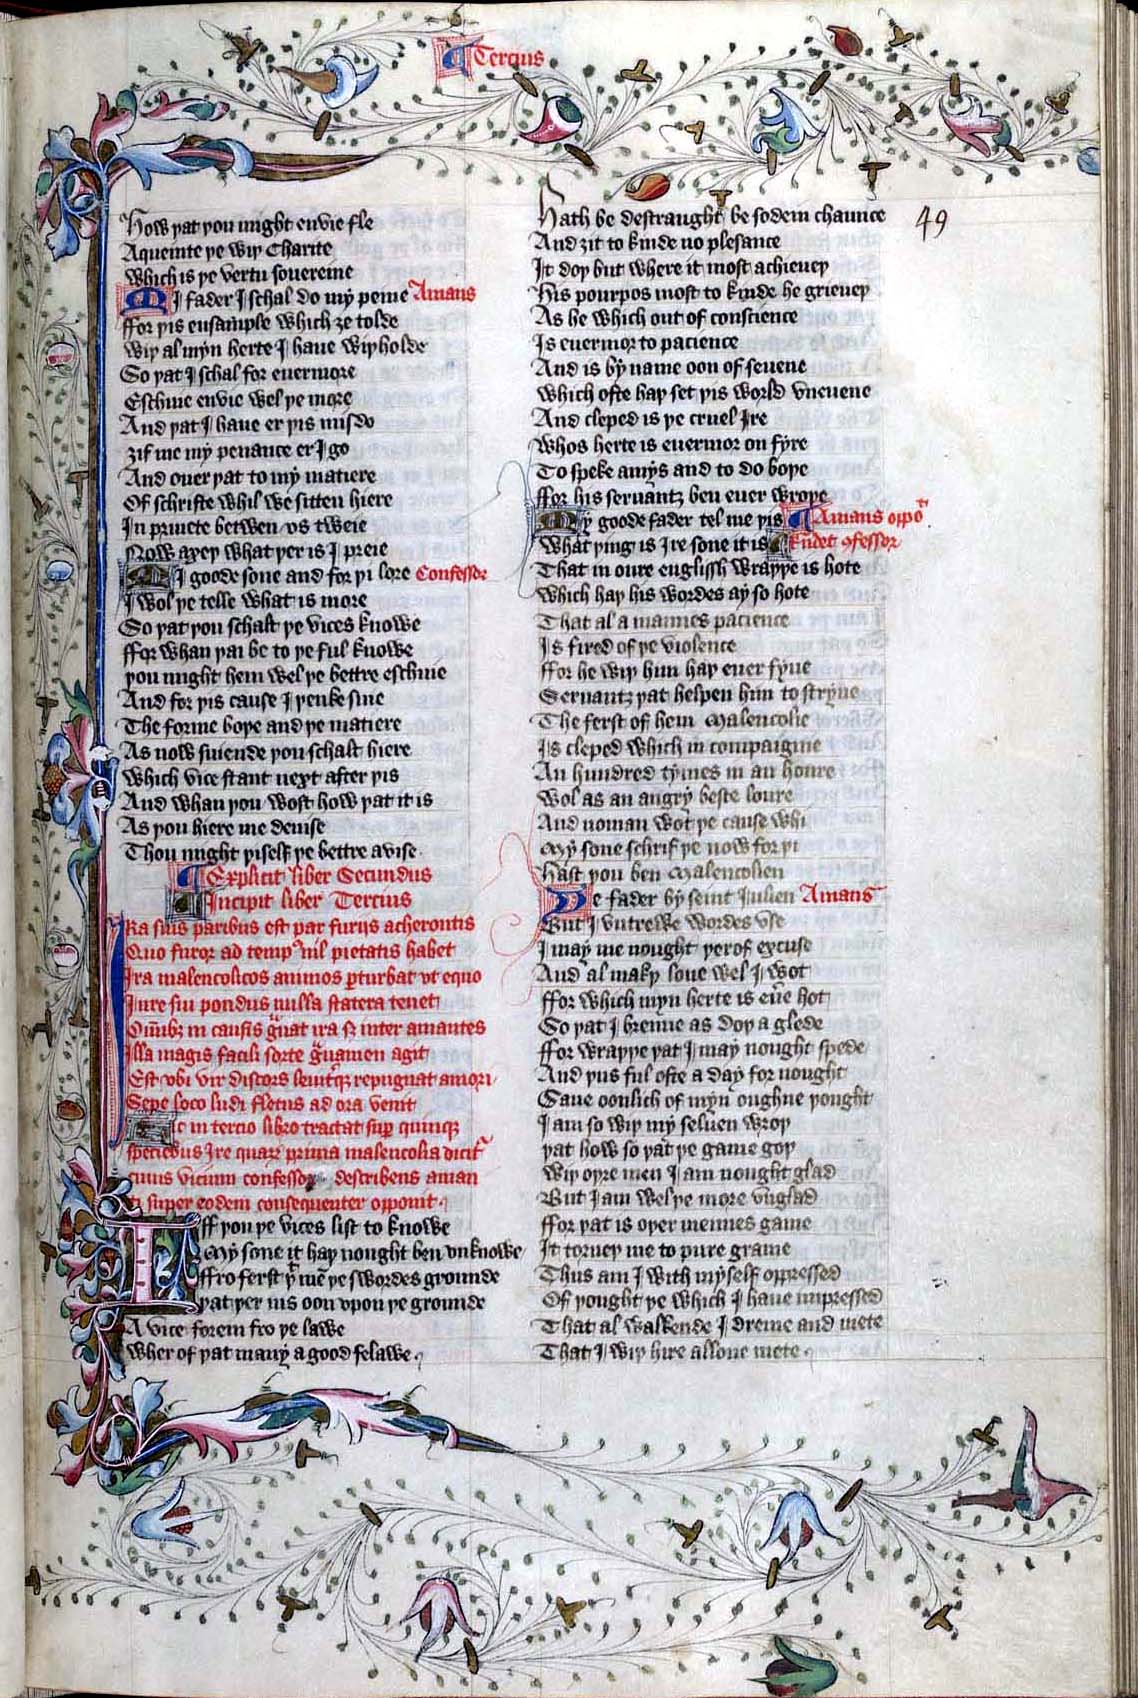 ¶ Tercius
49
How þat þou might envie fle
Aqueinte þe wiþ Charite
Which is þe vertu souereine
Mi fader I schal do my peine Amans
ffor þis ensample which ȝe tolde
Wiþ al myn herte I haue wiþholde
So þat I schal for euermore
Eschiue envie wel þe more
And þat I haue er þis misdo
ȝif me my penance er I go
And ouer þat to my matiere
Of schrifte whil we sitten hiere
In priuete betwen vs tweie
Now axeþ what þer is I preie
Mi goode sone and for þi lore Confessor
I wol þe telle what is more
So þat þou schalt þe vices knowe
ffor whan þai be to þe ful knowe
þou might hem wel þe bettre eschiue
And for þis cause I þenke siue
The forme boþe and þe matiere
As now suiende þou schalt hiere
Which vice stant next after þis
And whan þou wost how þat it is
As þou hiere me deuise
Thou might þiself þe bettre avise
¶ Explicit liber Secundus
¶ Incipit liber Tercius
Ira suis paribus est par furijs acherontis
Quo furor ad temp9 nil pietatis habet
Ira malencolicos animos pturbat vt equo
Iure sui pondus nulla statera tenet
Oĩbȝ in causis gͣuat ira sȝ inter amantes
Illa magis facili sorte gͣuamen agit
Est vbi vir discors leuitqȝ repugnat amori
Sepe loco ludi fletus ad ora venit
Hic in tercio libro tractat sup quinqȝ
speciebus Ire quarȝ prima malencolia dicit̃
cuius vicium confessor describens aman
ti super eodem consequenter opponit
Iff þou þe vices list to knowe
My sone it haþ nought ben vnknowe
ffro ferst þͭ mẽ þe swordes grounde
þat þer nis oon vpon þe grounde
A vice forein fro þe lawe
Wher of þat many a good felawe
Hath be destraught be sodein chaunce
And ȝit to kinde no plesance
It doþ but where it most achieueþ
His pourpos most to kinde he grieueþ
As he which out of conscience
Is euermor to pacience
And is by name oon of seuene
Which ofte haþ set þis world vneuene
And cleped is þe cruel Ire
Whos herte is euermor on fyre
To speke amys and to do boþe
ffor his seruantz ben euer wroþe
My goode fader tel me þis ¶ Amans oppõ
What þing is Ire sone it is ¶ Rñdet ꝯfessor
That in oure englissh wraþþe is hote
Which haþ his wordes ay so hote
That al a mannes pacience
Is fired of þe violence
ffor he wiþ him haþ euer fyue
Seruantz þat helpen him to stryue
The ferst of hem Malencolie
Is cleped which in compaignie
An hundred tymes in an houre
Wol as an angry beste loure
And noman wot þe cause whi
My sone schrif þe now for þi
Hast þou ben Malencolien
ȝe fader by seint Iulien Amans
But I vntrewe wordes vse
I may me nought þerof excuse
And al makþ loue wel I wot
ffor which myn herte is eũe hot
So þat I brenne as doþ a glede
ffor wraþþe þat I may nought spede
And þus ful ofte a day for nought
Saue oonlich of myn oughne þought
I am so wiþ my seluen wroþ
þat how so þat þe game goþ
Wiþ oþre men I am nought glad
But I am wel þe more vnglad
ffor þat is oþer mennes game
It torneþ me to pure grame
Thus am I with myself oppressed
Of þought þe which I haue impressed
That al wakende I dreme and mete
That I wiþ hire allone mete